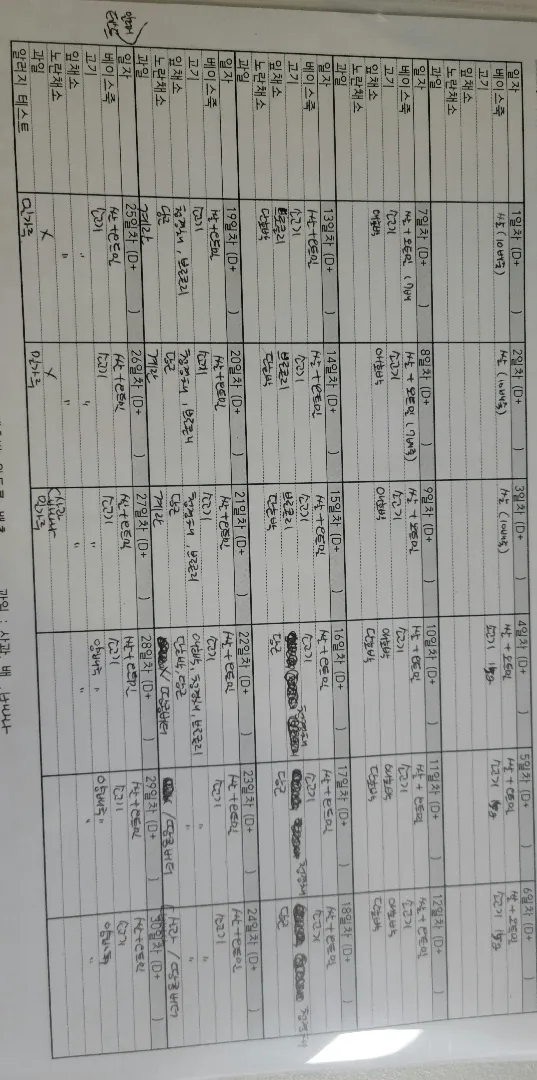 일자 1일차 (D+ ) 2일차 (D+ ) 3일차 (D+ ) 4일차 (D+ ) 5일차 (D+ ) 6일차 (D+ )
베이스죽 쌀 (10배죽) 쌀 (10배죽) 쌀 (10배죽) 쌀 + 오트밀 쌀 + 오트밀 쌀 + 오트밀
고기 소고기 소고기 소고기
잎채소
노란채소
과일
일자 7일차 (D+ ) 8일차 (D+ ) 9일차 (D+ ) 10일차 (D+ ) 11일차 (D+ ) 12일차 (D+ )
베이스죽 쌀 + 오트밀 (7배 쌀 + 오트밀 (7배죽) 쌀 + 오트밀 쌀 + 오트밀 쌀 + 오트밀 쌀 + 오트밀
고기 소고기 소고기 소고기 소고기 소고기 소고기
잎채소 애호박 애호박 애호박 애호박 애호박 애호박
노란채소 단호박 단호박 단호박
과일
일자 13일차 (D+ ) 14일차 (D+ ) 15일차 (D+ ) 16일차 (D+ ) 17일차 (D+ ) 18일차 (D+ )
베이스죽 쌀+오트밀 쌀+오트밀 쌀+오트밀 쌀+오트밀 쌀+오트밀 쌀+오트밀
고기 소고기 소고기 소고기 소고기 소고기 소고기
잎채소 브로콜리 브로콜리 브로콜리 청경채 청경채 청경채
노란채소 단호박 단호박 단호박 당근 당근 당근
과일
일자 19일차 (D+ ) 20일차 (D+ ) 21일차 (D+ ) 22일차 (D+ ) 23일차 (D+ ) 24일차 (D+ )
베이스죽 쌀+오트밀 쌀+오트밀 쌀+오트밀 쌀+오트밀 쌀+오트밀 쌀+오트밀
고기 소고기 소고기 소고기 소고기 소고기 소고기
잎채소 청경채, 브로콜리 청경채, 브로콜리 청경채, 브로콜리 애호박, 청경채, 브로콜리 " "
노란채소 당근 당근 당근 단호박, 당근 "
과일 계란 계란 계란 / 땅콩버터 / 땅콩버터 / 땅콩버터
일자 25일차 (D+ ) 26일차 (D+ ) 27일차 (D+ ) 28일차 (D+ ) 29일차 (D+ ) 30일차 (D+ )
베이스죽 쌀+오트밀 쌀+오트밀 쌀+오트밀 쌀+오트밀 쌀+오트밀 쌀+오트밀
고기 소고기 소고기 소고기 소고기 소고기 소고기
잎채소 " " " 양배추 " 양배추 " 양배추
노란채소 " " " " "
과일 X X
알러지 테스트 밀가루 밀가루 밀가루
과일 : 사과, 배, 바나나